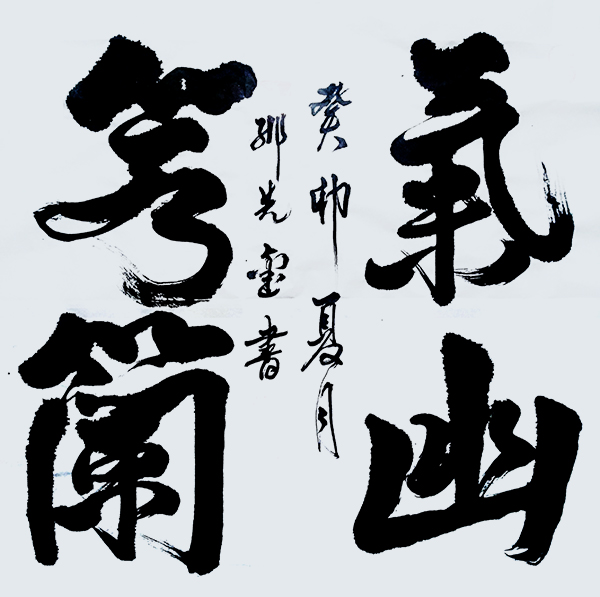 氣若
幽蘭
癸卯夏月
先書